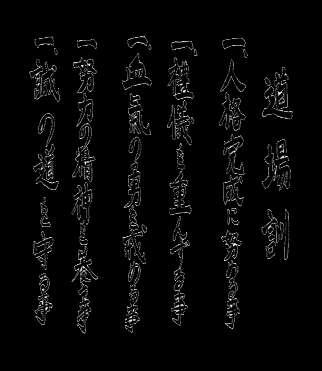 道場訓
一、人格完成に努むる事
一、禮儀を重んずる事
一、血氣の勇を戒むる事
一、努力の精神を養ふ事
一、誠の道を守る事